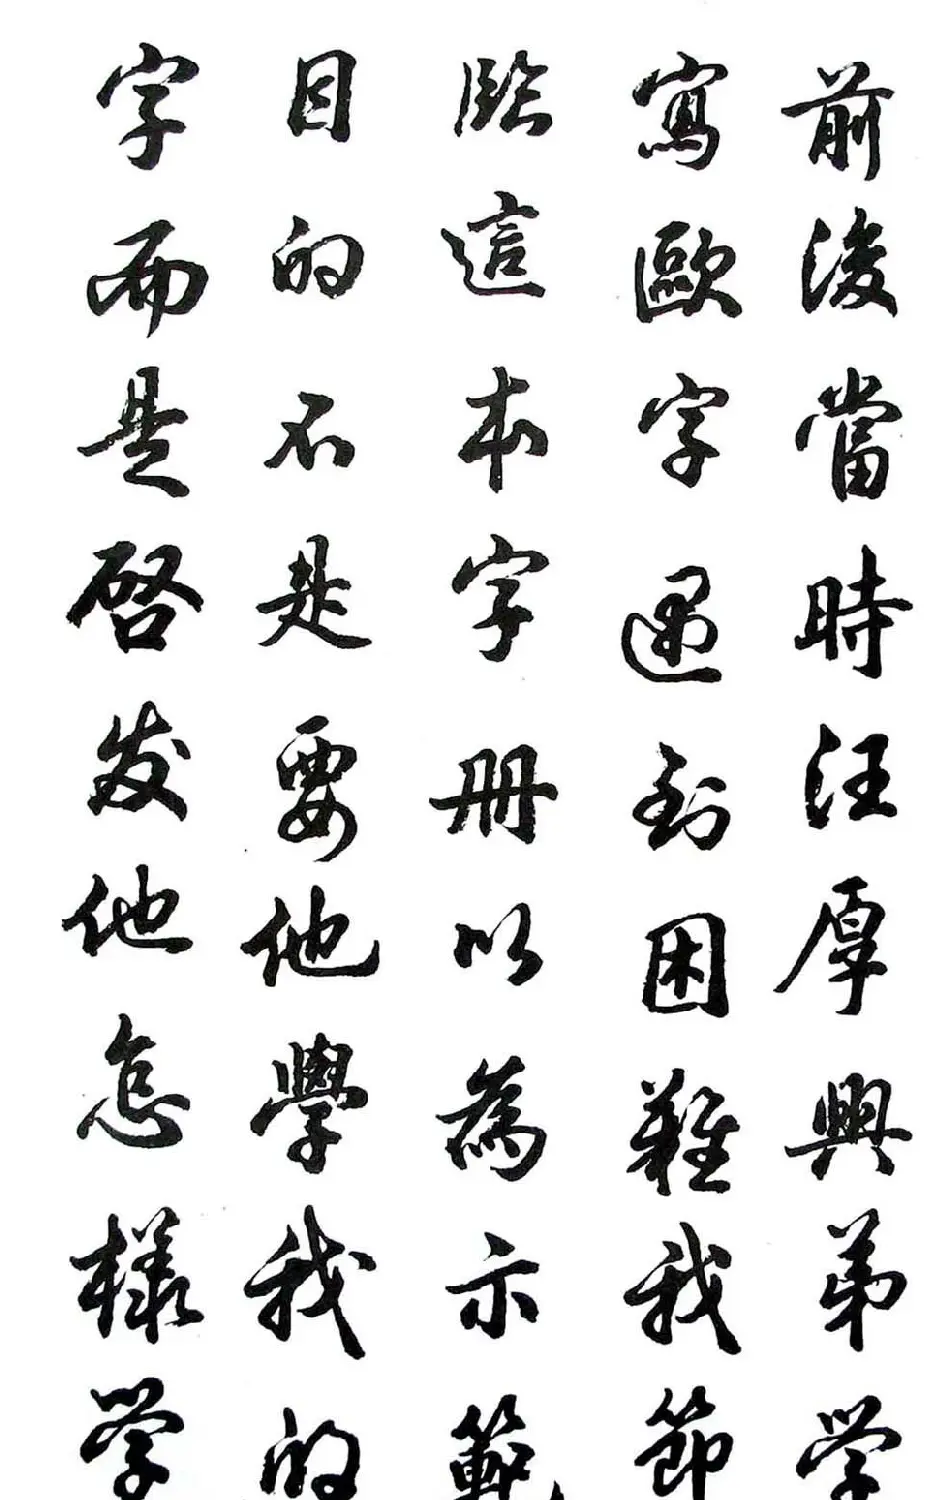 前後當時汪厚興弟学
寫歐字遇到困難我節
臨這本字册以為示範
目的不是要他學我的
字而是啓发他怎樣学